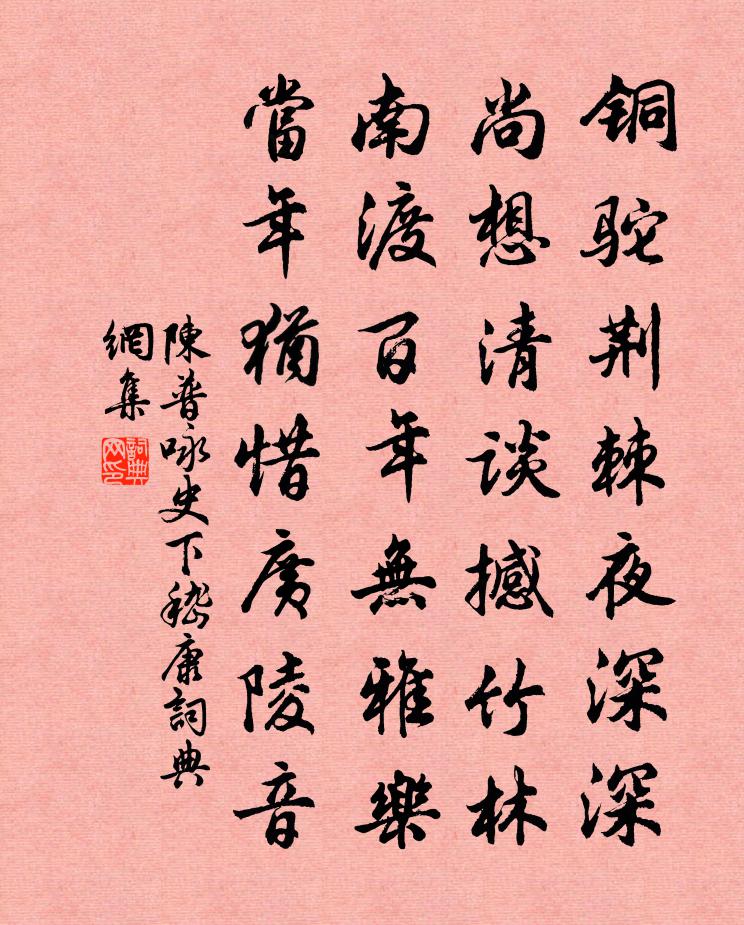 铜驼荆棘夜深深
尚想清谈撼竹林
南渡百年無雅樂
當年猶惜廣陵音
陳普咏史下嵇康詞典
網集
詞典
网印